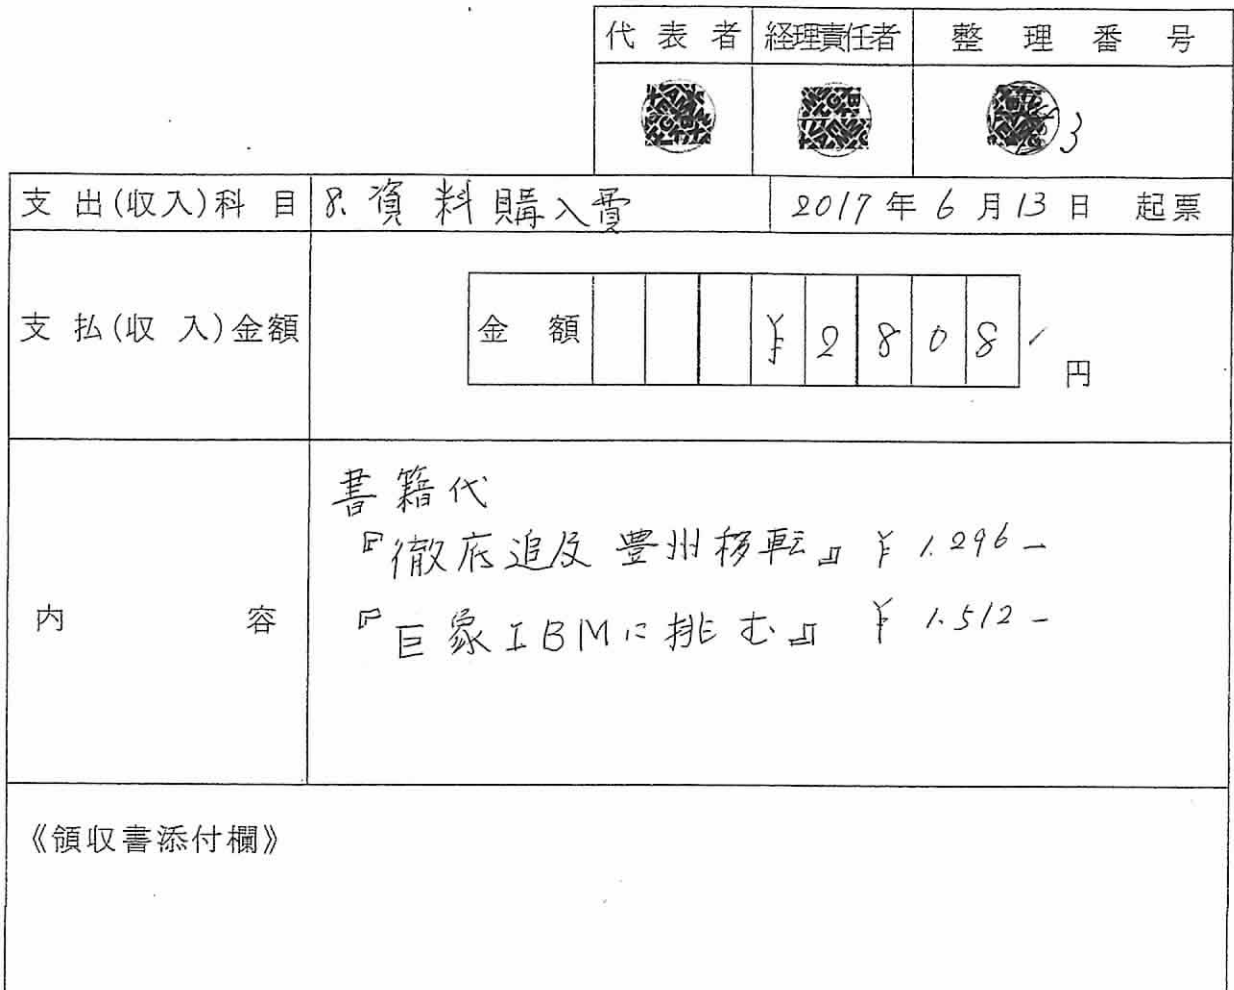 代表者 経理責任者 整理番号
3
支出(収入)科目 8.資料購入費 2017年6月13日 起票
支払(収入)金額 金額 ¥2808 円
書籍代
『徹底追及 豊州移転』 ¥1.296-
内容
『巨象IBMに挑む』 ¥1.512-
《領収書添付欄》